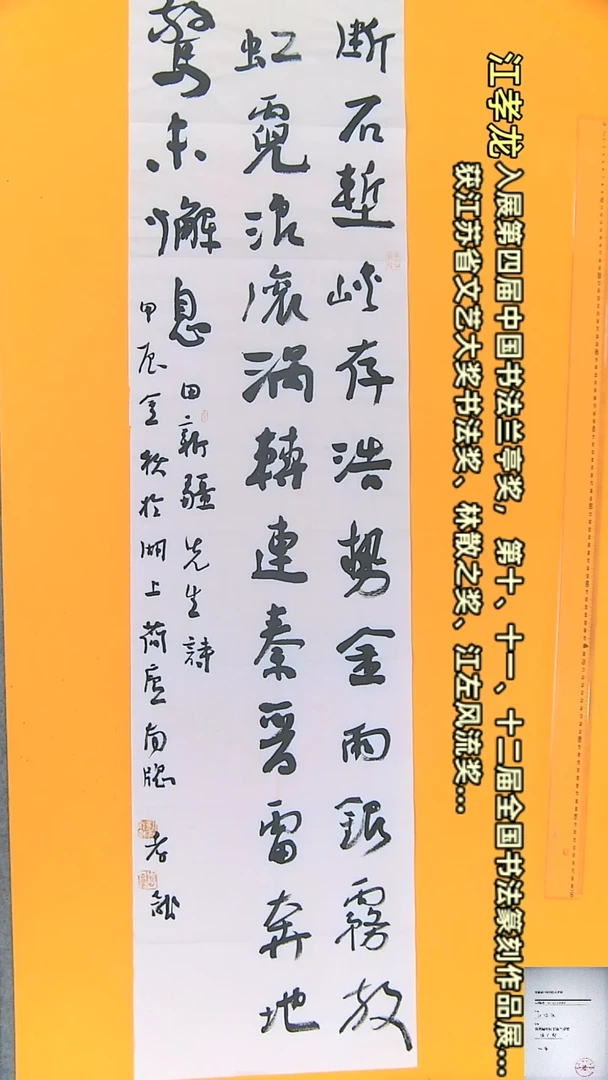 断石堑峡存浩势金雨银雾放
虹霓浪滚涡轉連秦晋雷奔地
驚未懈息
田新疆先生詩
甲辰金秋於湖上荷庐南牕
孝龍
江孝龙 入展第四届中国书法兰亭奖，第十、十一、十二届全国书法篆刻作品展...
获江苏省文艺大奖书法奖、林散之奖、江左风流奖...